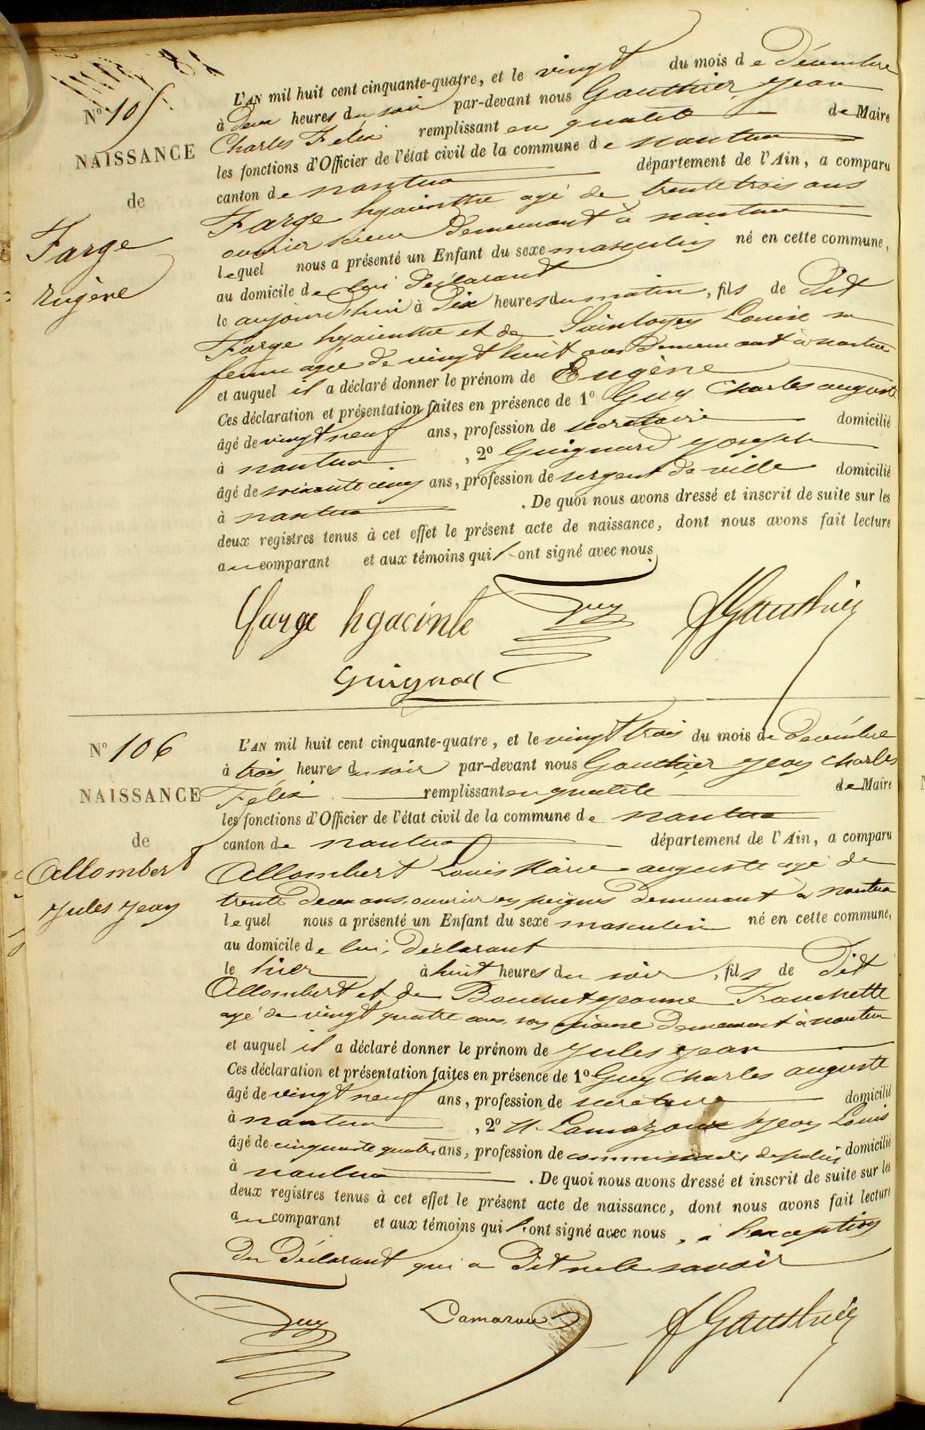 N° 105
NAISSANCE
de
Farge
Eugène
L'AN mil huit cent cinquante-quatre, et le vingt du mois de Décembre
à Deux heures du soir par-devant nous Gauthier Jean
Charles Félix remplissant en qualité de Maire
les fonctions d'Officier de l'état civil de la commune de nantua
canton de nantua département de l'Ain, a comparu
Farge hyacinthe agé de trente trois ans
ouvrier scieur demeurant à nantua
lequel nous a présenté un Enfant du sexe masculin né en cette commune,
au domicile de lui déclarant
le aujourd'hui à Dix heures du matin, fils de Dit
Farge hyacinthe et de Louise sa
femme agée de vingt huit ans demeurant à nantua
et auquel il a déclaré donner le prénom de Eugène
Ces déclaration et présentation faites en présence de 1° Guy Charles auguste
âgé de vingt neuf ans, profession de secretaire domicilié
à nantua, 2° Guignard Joseph
âgé de soixante cinq ans, profession de sergent de ville domicilié
à nantua. De quoi nous avons dressé et inscrit de suite sur les
deux registres tenus à cet effet le présent acte de naissance, dont nous avons fait lecture
au comparant et aux témoins qui l'ont signé avec nous
Farge hyacinte Guy JGauthier
Guignard
N° 106
NAISSANCE
de
Allombert
Jules Jean
L'AN mil huit cent cinquante-quatre, et le vingt trois du mois de Décembre
à trois heures du soir par-devant nous Gauthier Jean Charles
Félix remplissant en qualité de Maire
les fonctions d'Officier de l'état civil de la commune de nantua
canton de nantua département de l'Ain, a comparu
Allombert Louis Marie auguste agé de
trente deux ans, ouvrier en peignes demeurant à nantua
lequel nous a présenté un Enfant du sexe masculin né en cette commune,
au domicile de lui, déclarant
le hier à huit heures du soir, fils de Dit
Allombert et de Bouchet Jeanne Franchette
agé de vingt quatre ans, son épouse demeurant à nantua
et auquel il a déclaré donner le prénom de Jules Jean
Ces déclaration et présentation faites en présence de 1° Guy Charles auguste
âgé de vingt neuf ans, profession de secretaire domicilié
à nantua, 2° Jean Louis
âgé de cinquante quatre ans, profession de commissaire de police domicilié
à nantua. De quoi nous avons dressé et inscrit de suite sur les
deux registres tenus à cet effet le présent acte de naissance, dont nous avons fait lecture
au comparant et aux témoins qui l'ont signé avec nous, à l'exception
du Déclarant qui a Dit ne le savoir
Guy JGauthier